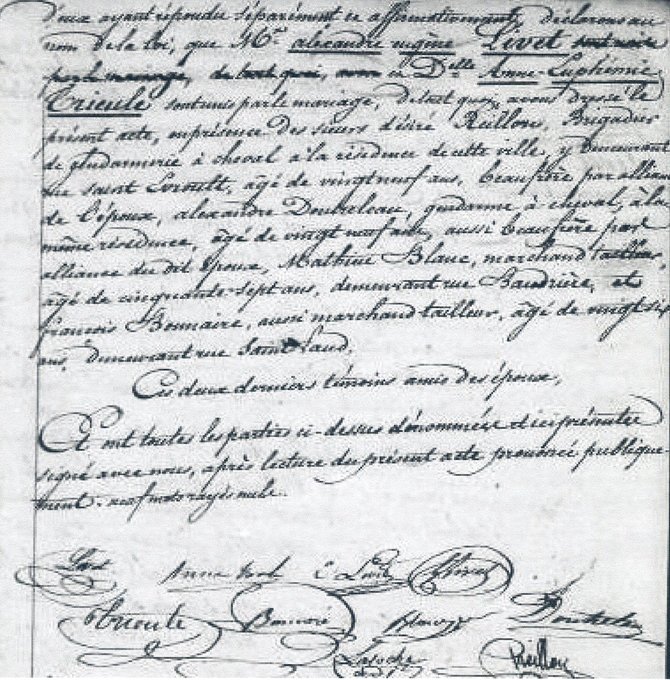 d'eux ayant répondu séparément et affirmativement, déclarons au
nom de la loi, que Mr. alexandre eugène Livet sont unis
par le mariage, de tout quoi, avons et Dlle Anne-Euphémie
Trioule sont unis par le mariage, De tout quoi, avons dressé le
présent acte, en présence des sieurs désiré Reillon, Brigadier
de gendarmerie à cheval à la résidence de cette ville, y demeurant
rue saint Evroult, âgé de vingt neuf ans, beaufrère par allian
de l'époux, alexandre Doubreleau, gendarme à cheval, à la
même résidence, âgé de vingt neuf ans, aussi beaufrère par
alliance du dit époux, Mathieu Blanc, marchand tailleur,
âgé de cinquante-sept ans, demeurant rue Baudrière, et
françois Bonnaire, aussi marchand tailleur, âgé de vingt six
ans, demeurant rue Saint Laud.
Ces deux derniers témoins amis des époux,
Et ont toutes les parties ci-dessus dénommées et ici présentes
signé avec nous, après lecture du présent acte prononcé publique-
ment. neuf mots rayés nuls.
Livet Anna
Trioule Bonnaire Blanc
Laroche Reillon